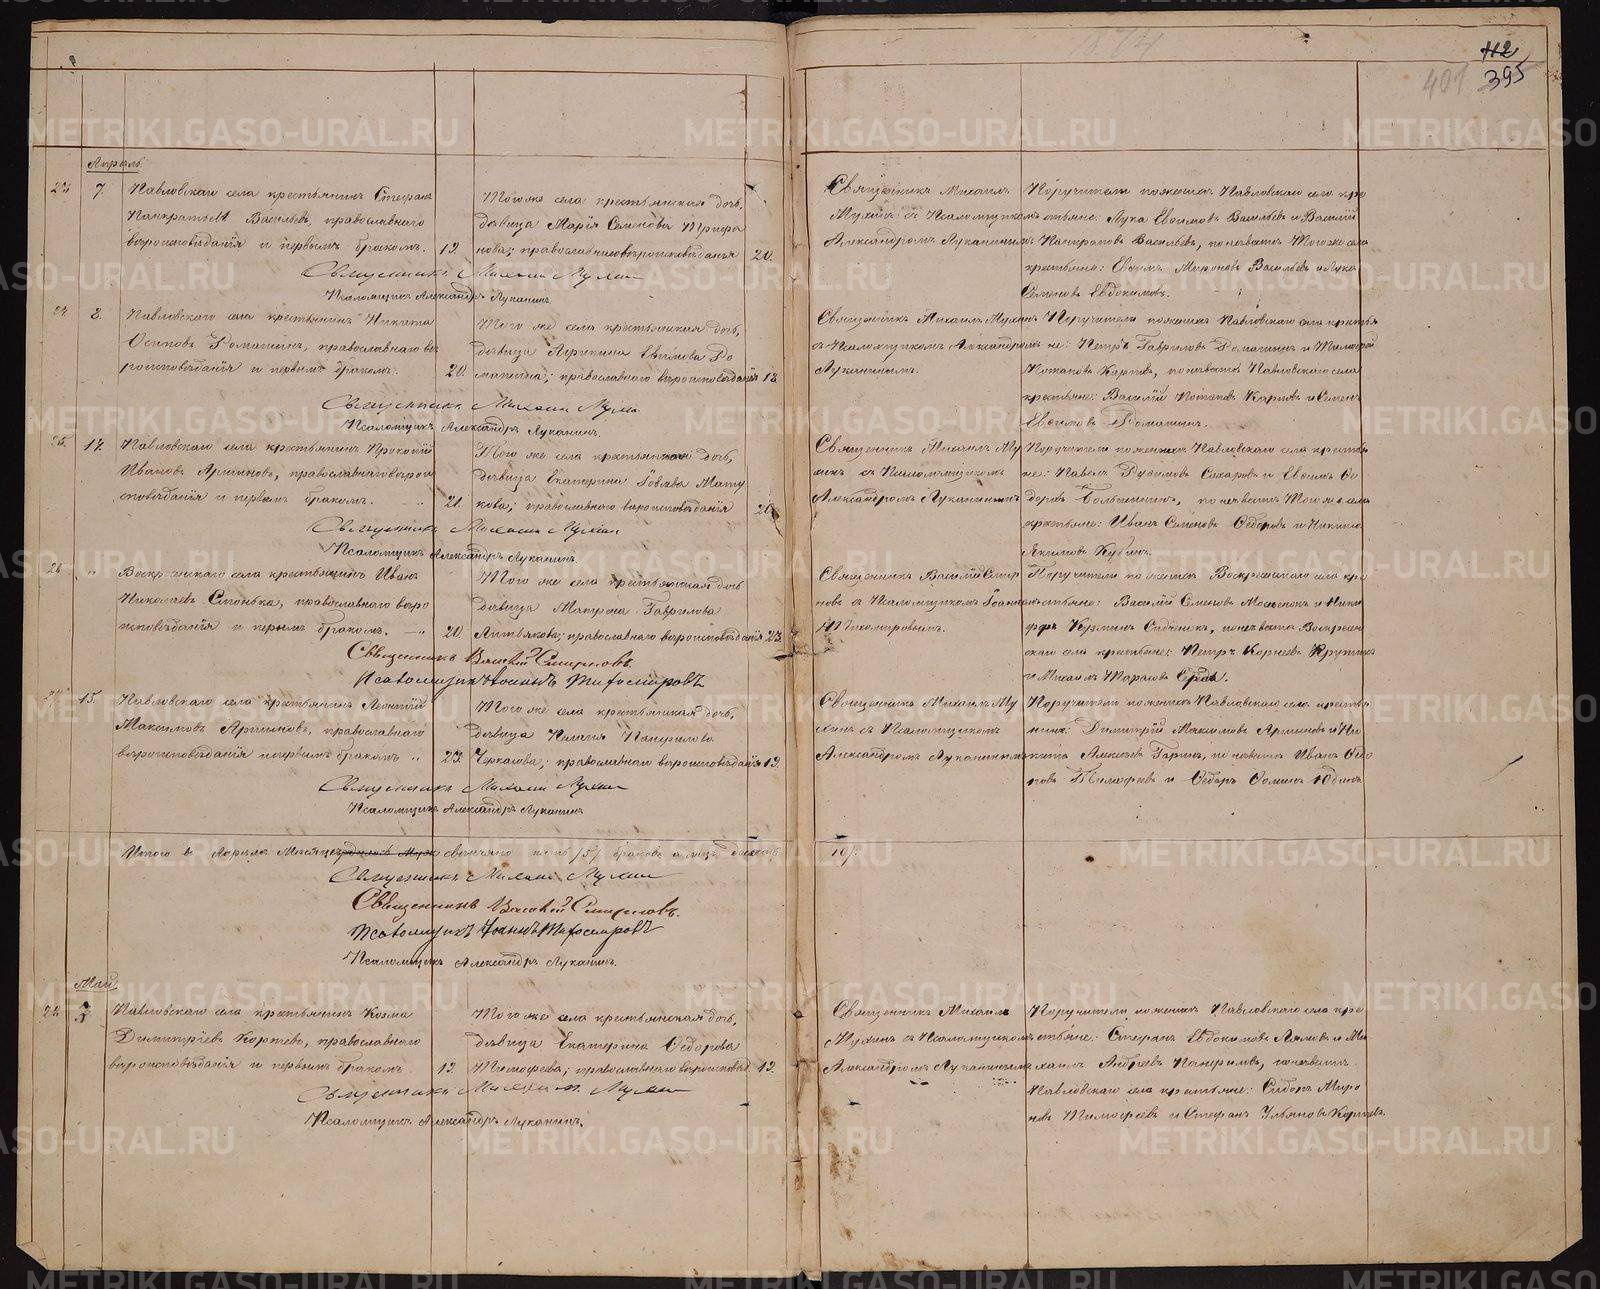 1874
112
401 395
Апрѣль.
23. 7. Павловскаго села крестьянинъ Стефанъ
Панкратьевъ Васильевъ, православнаго
вѣроисповѣданія и первымъ бракомъ. 19.
Того же села крестьянская дочь,
дѣвица Марія Семенова
нова; православнаго вѣроисповѣданія 20.
Священникъ Михаилъ
Мухинъ съ Псаломщикомъ
Александромъ Луканинымъ
Поручители по женихѣ Павловскаго села кре
стьяне: Лука Евфимовъ Васильевъ и Василій
Панкратовъ Васильевъ, по невѣстѣ Того же села
крестьяне: Евфимъ Мироновъ Васильевъ и Лука
Семеновъ Евдокимовъ.
Священникъ Михаилъ Мухинъ
Псаломщикъ Александръ Луканинъ.
24. 8. Павловскаго села крестьянинъ Никита
Осиповъ Ромашинъ, православнаго вѣ
роисповѣданія и первымъ бракомъ. 20.
Того же села крестьянская дочь,
дѣвица Агрипина Евфимова До
православнаго вѣроисповѣданія 18.
Священникъ Михаилъ Мухинъ
съ Псаломщикомъ Александромъ
Луканинымъ.
Поручители по женихѣ Павловскаго села крестья
не: Петръ Гавриловъ Ромашинъ и Тимофей
Потаповъ Карповъ, по невѣстѣ Павловскаго села
крестьяне: Василій Потаповъ Карповъ и Семенъ
Евфимовъ
Священникъ Михаилъ Мухинъ
Псаломщикъ Александръ Луканинъ.
25. 14. Павловскаго села крестьянинъ Прокопій
Ивановъ православнаго вѣрои
сповѣданія и первымъ бракомъ. 21.
Того же села крестьянская дочь,
дѣвица Екатерина
кова; православнаго вѣроисповѣданія 20.
Священникъ Михаилъ Му
хинъ съ Псаломщикомъ
Александромъ Луканинымъ
Поручители по женихѣ Павловскаго села крестья
не: Павелъ Сахаровъ и Евфимъ Ѳе
доровъ по невѣстѣ Того же села
крестьяне: Иванъ Семеновъ Ѳедоровъ и Никита
Якимовъ
Священникъ Михаилъ Мухинъ
Псаломщикъ Александръ Луканинъ.
26. " Воскресенскаго села крестьянинъ Иванъ
Николаевъ православнаго вѣро
исповѣданія и первымъ бракомъ. — 20
Того же села крестьянская дочь
дѣвица Гаврилова
православнаго вѣроисповѣданія 23.
Священникъ Василій Смир
новъ съ Псаломщикомъ Іоанномъ
Тихомировымъ.
Поручители по женихѣ Воскресенскаго села кре
стьяне: Василій Семеновъ и Ники
форъ по невѣстѣ Воскресен
скаго села крестьяне: Петръ Корнеевъ
и Михаилъ Тарасовъ
Священникъ Василій Смирновъ
Псаломщикъ Іоаннъ Тихомировъ
27. 15. Павловскаго села крестьянинъ Леонтій
Максимовъ православнаго
вѣроисповѣданія и первымъ бракомъ " 23.
Того же села крестьянская дочь,
дѣвица Пелагія Панфилова
Черкасова; православнаго вѣроисповѣданія 19.
Священникъ Михаилъ Му
хинъ съ Псаломщикомъ
Александромъ Луканинымъ
Поручители по женихѣ Павловскаго села крестья
нинъ: Димитрій Максимовъ и Ни
кита Алексѣевъ по невѣстѣ Иванъ
и Ѳедоръ Ѳоминъ Юдинъ
Священникъ Михаилъ Мухинъ
Псаломщикъ Александръ Луканинъ
Итого въ Апрѣлѣ Мѣсяцѣ свѣнчано пять /5/ браковъ а лицъ десять
/10/.
Священникъ Михаилъ Мухинъ
Священникъ Василій Смирновъ.
Псаломщикъ Іоаннъ Тихомировъ
Псаломщикъ Александръ Луканинъ.
Май
28. Павловскаго села крестьянинъ Козма
Димитріевъ Корневъ, православнаго
вѣроисповѣданія и первымъ бракомъ. 19
Того же села крестьянская дочь,
дѣвица Екатерина Ѳедорова
Тимофеева; православнаго вѣроисповѣд. 19.
Священникъ Михаилъ
Мухинъ съ Псаломщикомъ
Александромъ Луканинымъ
Поручители по женихѣ Павловскаго села кре
стьяне: Стефанъ Евдокимовъ и Ми
хаилъ Андреевъ Панфиловъ, по невѣстѣ
Павловскаго села крестьяне: Сидоръ Миро
новъ Тимофеевъ и Стефанъ Ульяновъ Корневъ.
Священникъ Михаилъ Мухинъ
Псаломщикъ Александръ Луканинъ.
METRIKI.GASO-URAL.RU